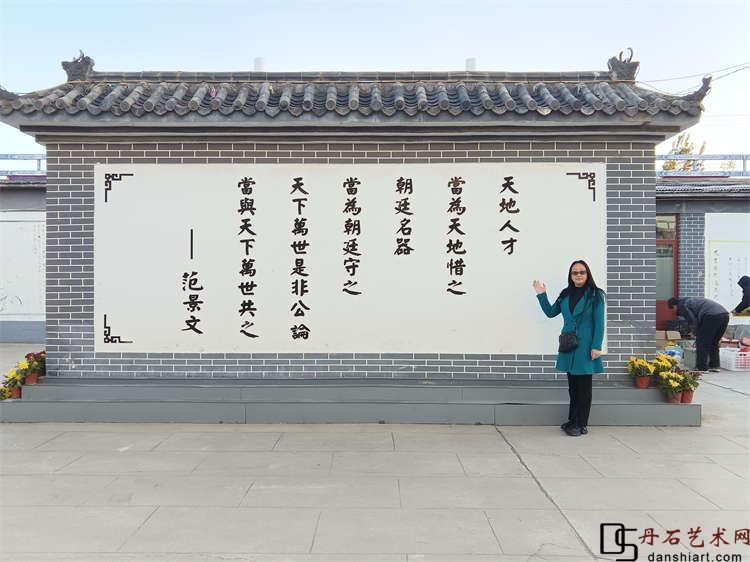 天地人才
當為天地惜之
朝廷名器
當為朝廷守之
天下萬世是非公論
當與天下萬世共之
——范景文
DS
丹石艺术网
danshiart.com